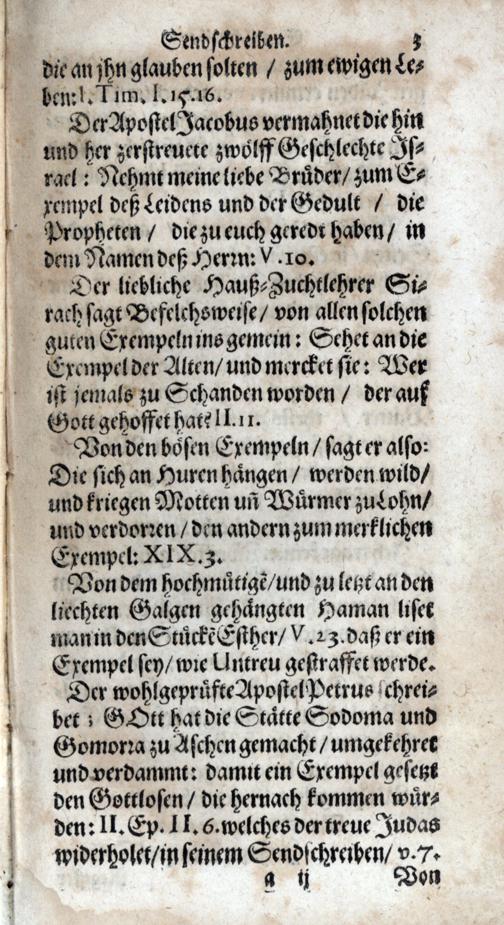 Sendschreiben. 3
die an jhn glauben solten / zum ewigen Le-
ben: I. Tim. I. 15. 16.
Der Apostel Jacobus vermahnet die hin
und her zerstreuete zwölff Geschlechte Js-
rael : Nehmt meine liebe Brüder / zum E-
xempel deß Leidens und der Gedult / die
Propheten / die zu euch geredt haben / in
dem Namen deß Herrn: V . 10.
Der liebliche Hauß-Zuchtlehrer Si-
rach sagt Befelchsweise / von allen solchen
guten Exempeln ins gemein : Sehet an die
Exempel der Alten / und mercket sie : Wer
ist jemals zu Schanden worden / der auf
Gott gehoffet hat? II. 11.
Von den bösen Exempeln / sagt er also:
Die sich an Huren hängen / werden wild /
und kriegen Motten uñ Würmer zu Lohn /
und verdorren / den andern zum merklichen
Exempel: XIX. 3.
Von dem hochmütigẽ / und zu letzt an den
liechten Galgen gehängten Haman liset
man in den Stückẽ Esther / V . 23. daß er ein
Exempel sey / wie Untreu gestraffet werde.
Der wohlgeprüfte Apostel Petrus schrei-
bet ; GOtt hat die Stätte Sodoma und
Gomorra zu Aschen gemacht / umgekehret
und verdammt: damit ein Exempel gesetzt
den Gottlosen / die hernach kommen wür-
den: II. Ep. II. 6. welches der treue Judas
widerholet / in seinem Sendschreiben / v. 7.
a ij Von